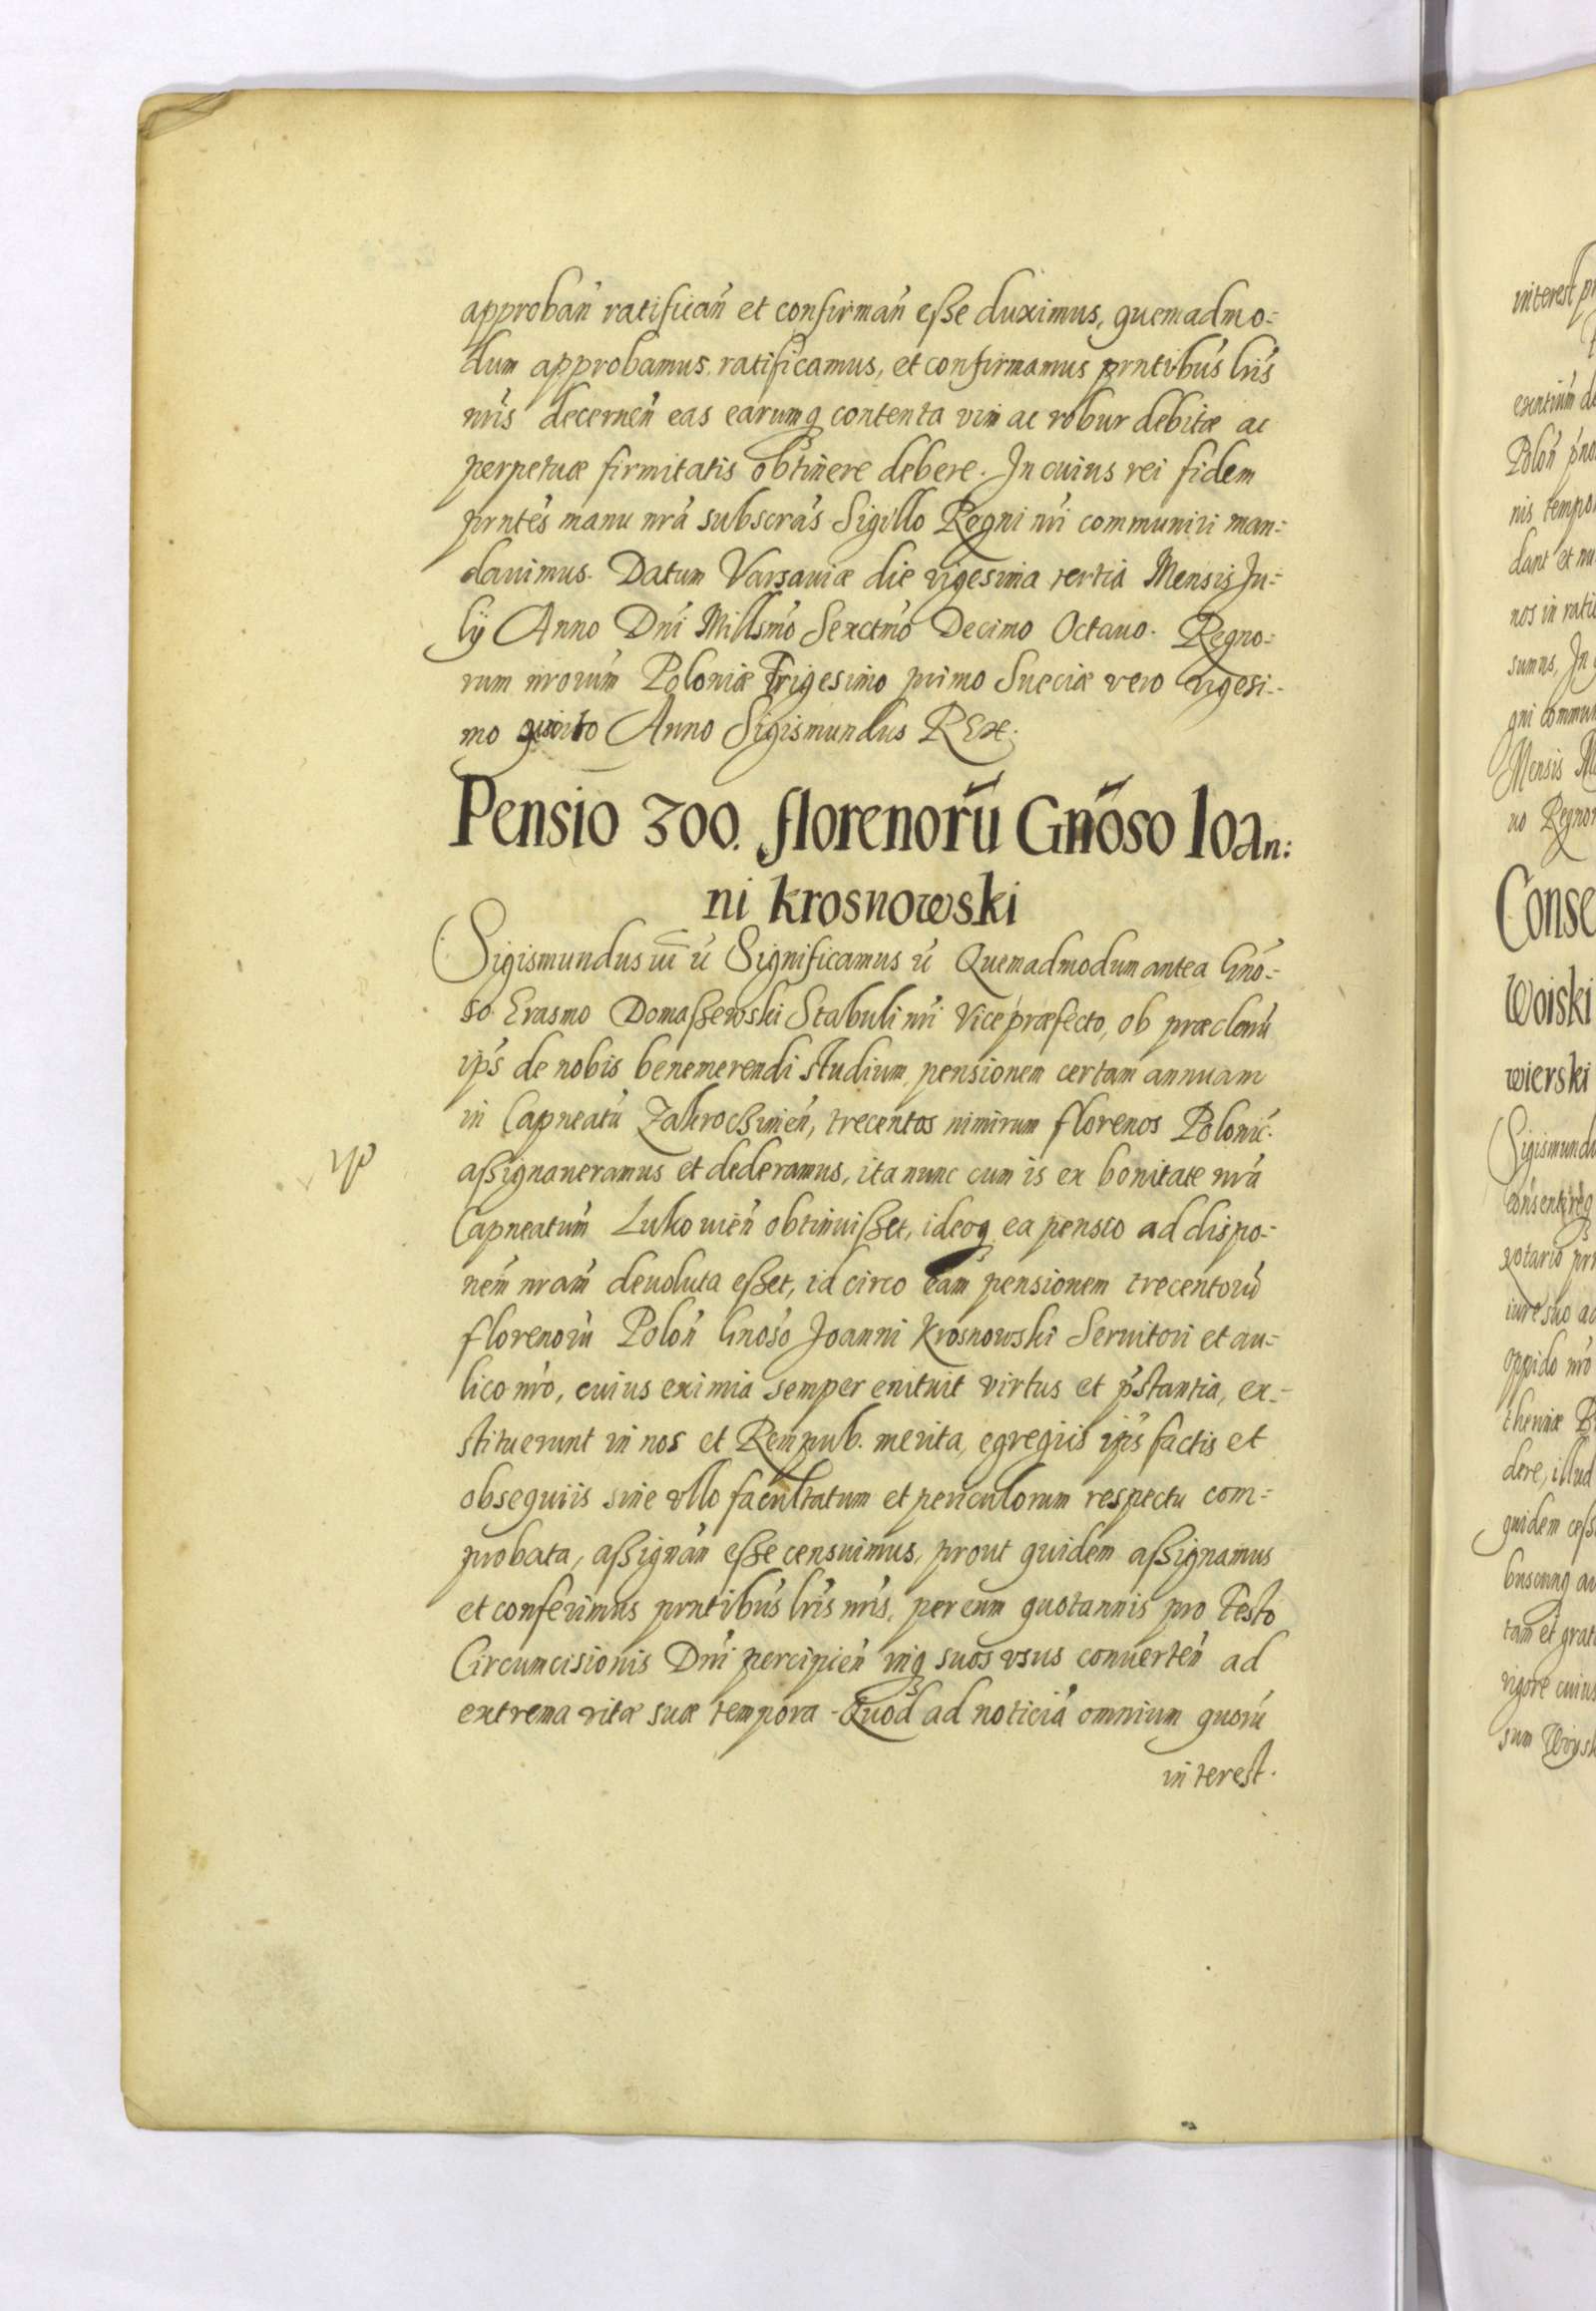 approban̄ ratifican̄ et confirman̄ eſse duximus, quemadmo=
dum approbamus, ratificamus, et confirmamus prntibus lris
nris decernen̄ eas earumq contenta vim ac robur debitæ ac
perpetuæ firmitatis obtinere debere. In cuius rei fidem
prntes manu nra subscras Sigillo Regni nri communiri man=
dauimus. Datum Varsauiæ die vigesima tertia Mensis Ju=
lij Anno Dni Millsmo Sexctmo Decimo Octauo. Regno=
rum nrorum Poloniæ Trigesimo primo Sueciæ vero vigesi=
mo quinto Anno Sigismundus REx.
Pensio 300. florenorū Gnōso Ioan:
ni krosnowski
Sigismundus iii ū Significamus ū Quemadmodum antea Gno=
so Erasmo Domaſzewski Stabuli nri Vicepræfecto, ob præclarū
ips de nobis benemerendi studium, pensionem certam annuam
in Capneatu Zakroczimen̄, trecentos nimirum florenos Polonic.
aſsignaueramus et dederamus, ita nunc cum is ex bonitate nra
Capneatum Lukouien̄ obtinuiſset, ideoq ea pensio ad dispo=
nem nram deuoluta eſset, id circo eam pensionem trecentorū
florenorū Polon̄ Gnoso Joanni Krosnowski Seruitori et au=
lico nro, cuius eximia semper enituit virtus et pstantia, ex=
stituerunt in nos et Rempub. merita, egregiis ips factis et
obsequiis sine vllo facultatum et periculorum respectu com=
probata, aſsignan̄ eſse censuimus, prout quidem aſsignamus
et conferimus prntibus lris nris, per eum quotannis pro Festo
Circumcisionis Dni percipien̄ inq suos vsus conuerten̄ ad
extrema vitæ suæ tempora. Quod ad noticiā omnium quorū
interest.